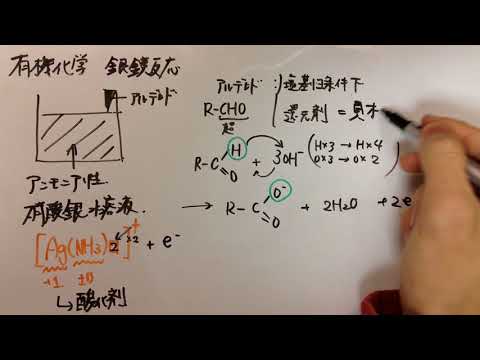 有機化学 銀鏡反応
アルデヒド
アンモニア性
硝酸銀水溶液.
[Ag(NH3)2]+ + e-
×2
+1 ±0
↳酸化剤
アルデヒド:塩基性条件下
R-CHO
還元剤 =
R-C H O + 3OH- (H×3 → H×4
O×3 → O×2)
→ R-C O- O + 2H2O + 2e